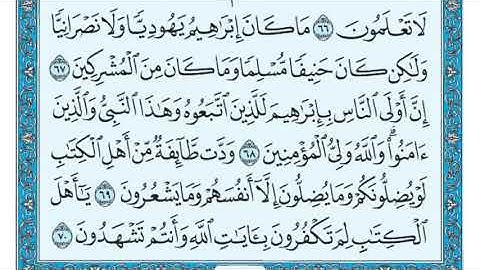 لَا تَعْلَمُونَ ٦٦ مَا كَانَ إِبْرَٰهِيمُ يَهُودِيًّا وَلَا نَصْرَانِيًّا
وَلَٰكِن كَانَ حَنِيفًا مُّسْلِمًا وَمَا كَانَ مِنَ الْمُشْرِكِينَ ٦٧
إِنَّ أَوْلَى النَّاسِ بِإِبْرَٰهِيمَ لَلَّذِينَ اتَّبَعُوهُ وَهَٰذَا النَّبِيُّ وَالَّذِينَ
ءَامَنُوا۟ ۗ وَاللَّهُ وَلِيُّ الْمُؤْمِنِينَ ٦٨ وَدَّت طَّآئِفَةٌ مِّنْ أَهْلِ الْكِتَٰبِ
لَوْ يُضِلُّونَكُمْ وَمَا يُضِلُّونَ إِلَّآ أَنفُسَهُمْ وَمَا يَشْعُرُونَ ٦٩ يَٰٓأَهْلَ
الْكِتَٰبِ لِمَ تَكْفُرُونَ بِـَٔايَٰتِ اللَّهِ وَأَنتُمْ تَشْهَدُونَ ٧٠